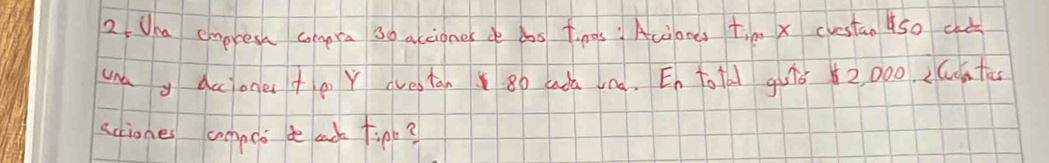 2. Una empresa compra 30 acciones de dos tipos: Acciones tipo X cuestan $50 cada
una y Acciones tipo Y cuestan $ 80 cada una. En total gastó $2,000. ¿Cuántas
acciones compró de cada tipo?